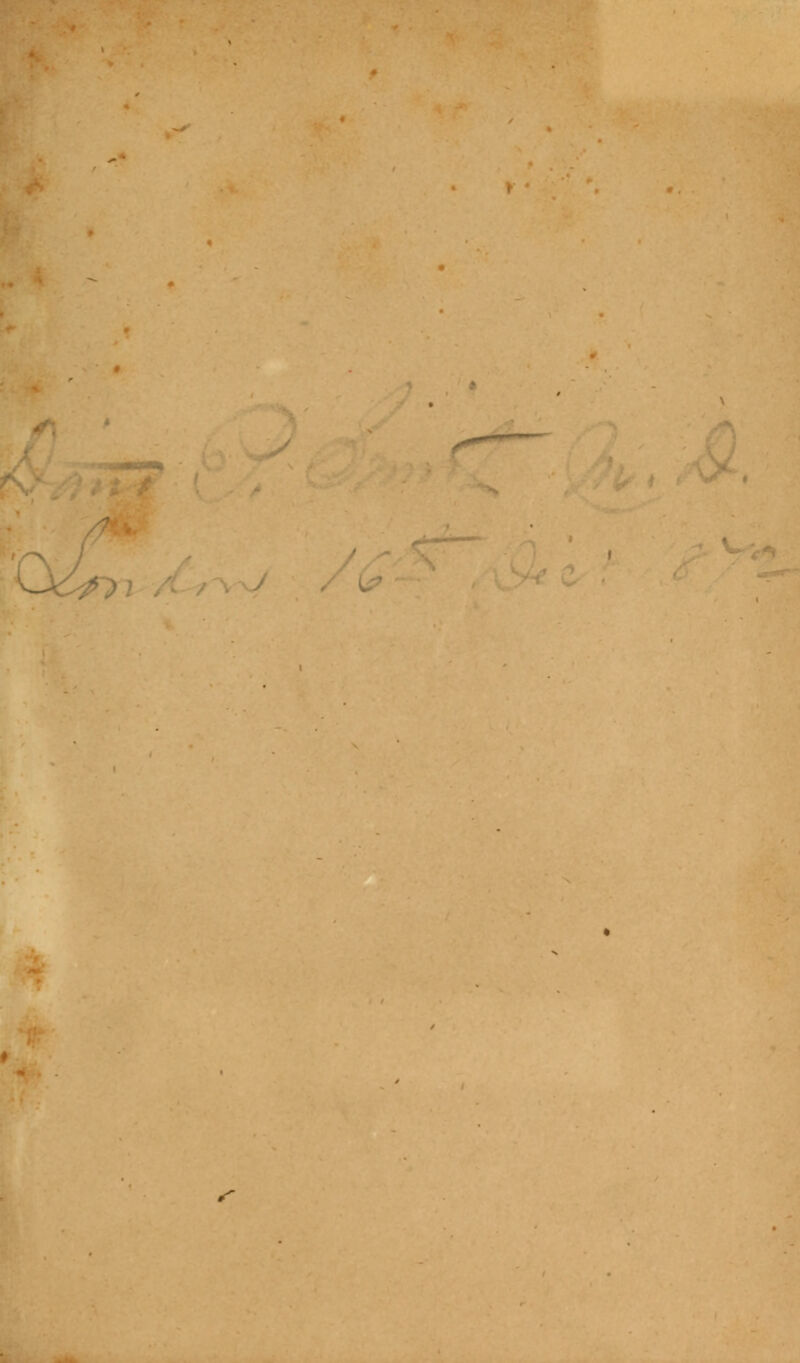 P. Smith M. D.
London 16th Dec! 872